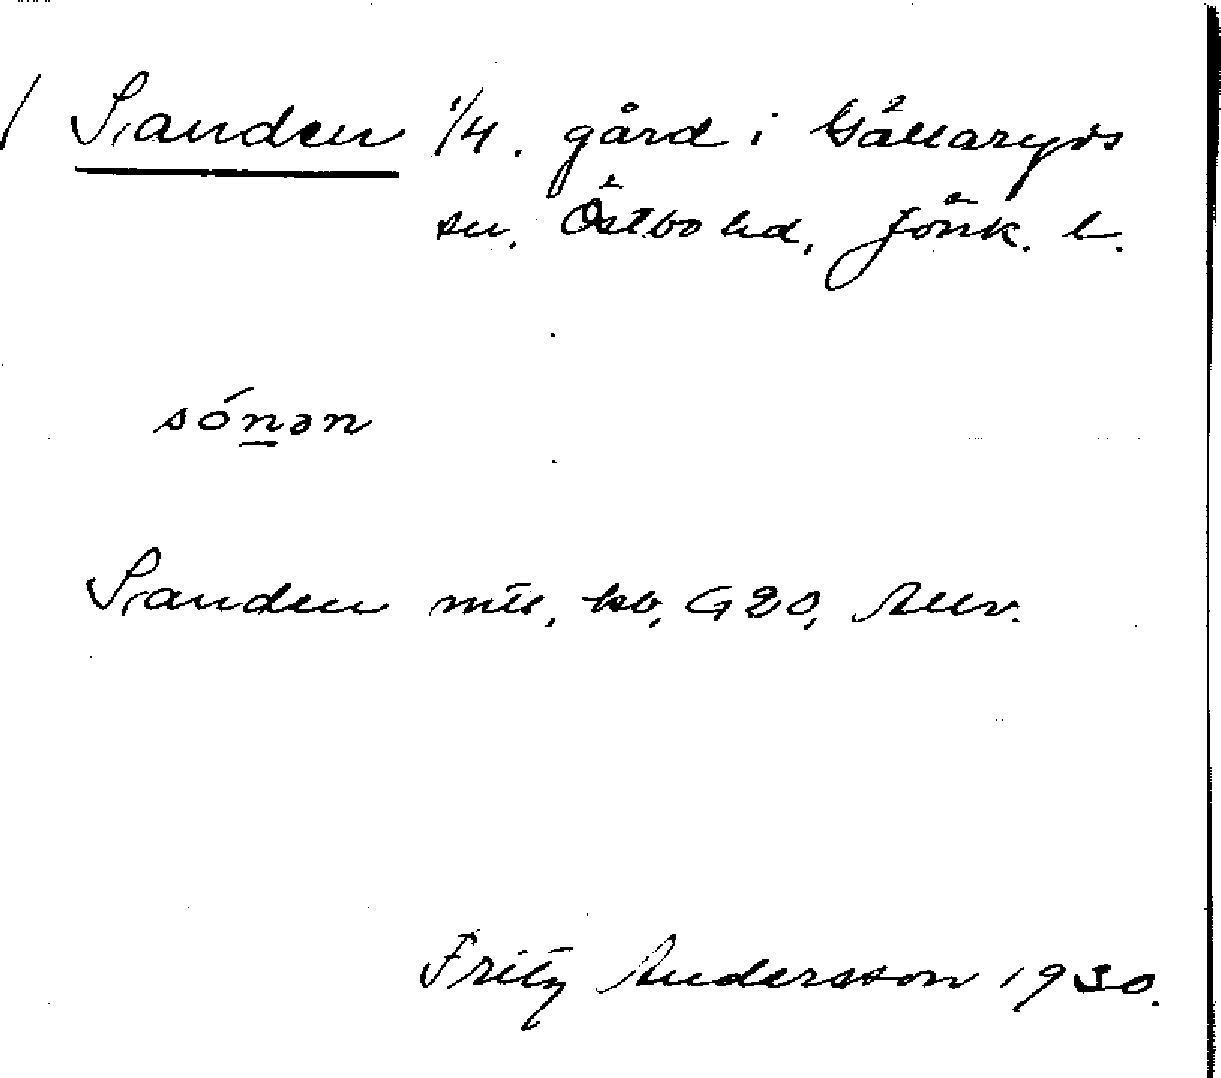 / Sanden 1/4. gård i Gällaryds
sn. Östbo hd, Jönk. l.
sónən
Sanden mtl, kb, G20, Allv.
Fritz Andersson 1930.